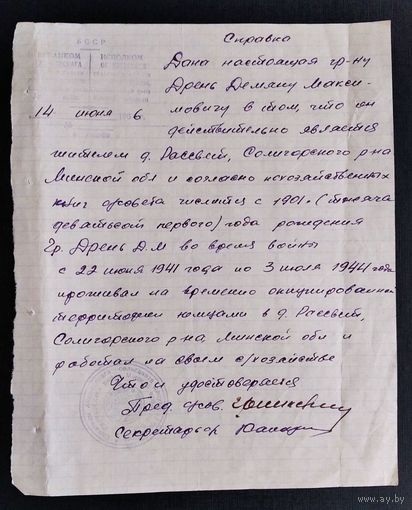 Справка
БССР
Дана настоящая гр-ну
Дрень Демяну Макси-
14 июня 6
мовичу в том, что он
действительно является
жителем д. Рассвет, Солигорского р-на
Минской обл и согласно похозяйственных
книг с/совета числится с 1901. (тысяча
девятьсот первого) года рождения
Гр. Дрень Д.М во время войны
с 22 июня 1941 года по 3 июля 1944 года
проживал на временно окупированной
территории немцами в д. Рассвет,
Солигорского р-на, Минской обл и
работал на своем с/хозяйстве
Что и удостоверяется
Пред. с/сов.
Секретарь
av.by